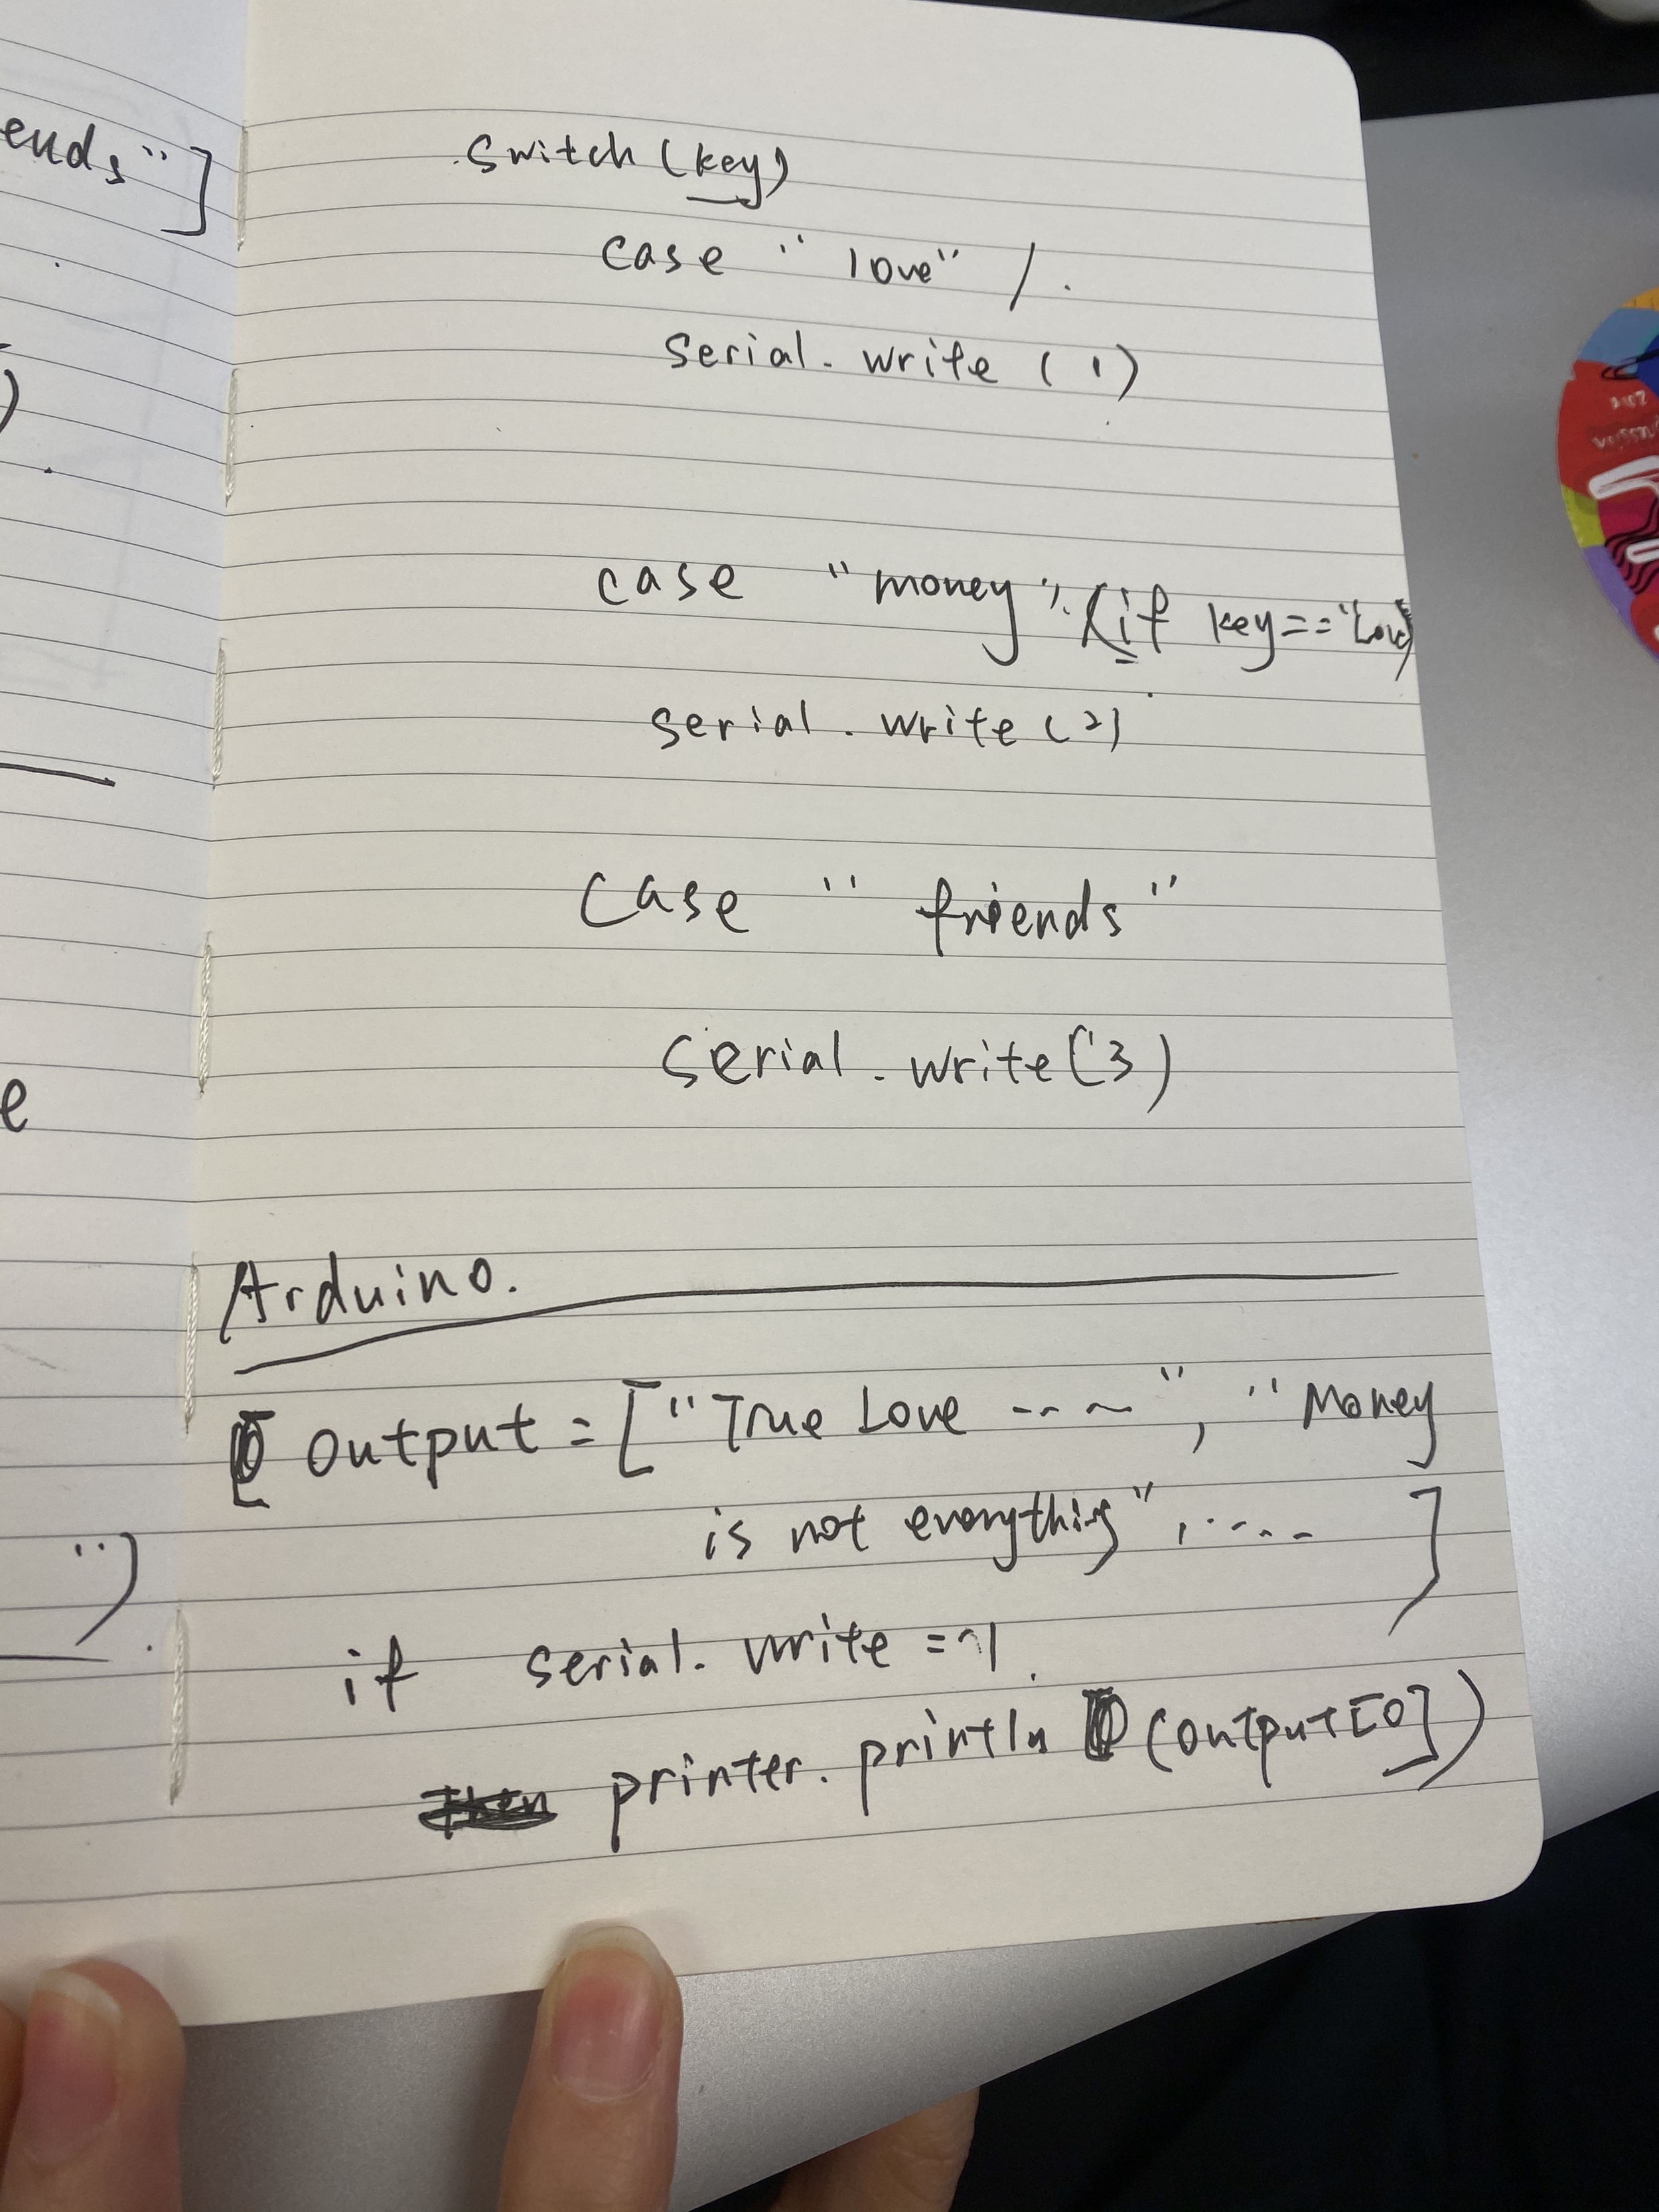 ends"]
)
e
")
switch (key)
case "love" /.
serial. write (1)
case "money". (if key=="Love")
serial. write (2)
case "friends"
serial. write(3)
Arduino.
output = ["True Love ---~", "Money
is not everything", ..... ]
if serial. write = 1.
printer. println (output[0])